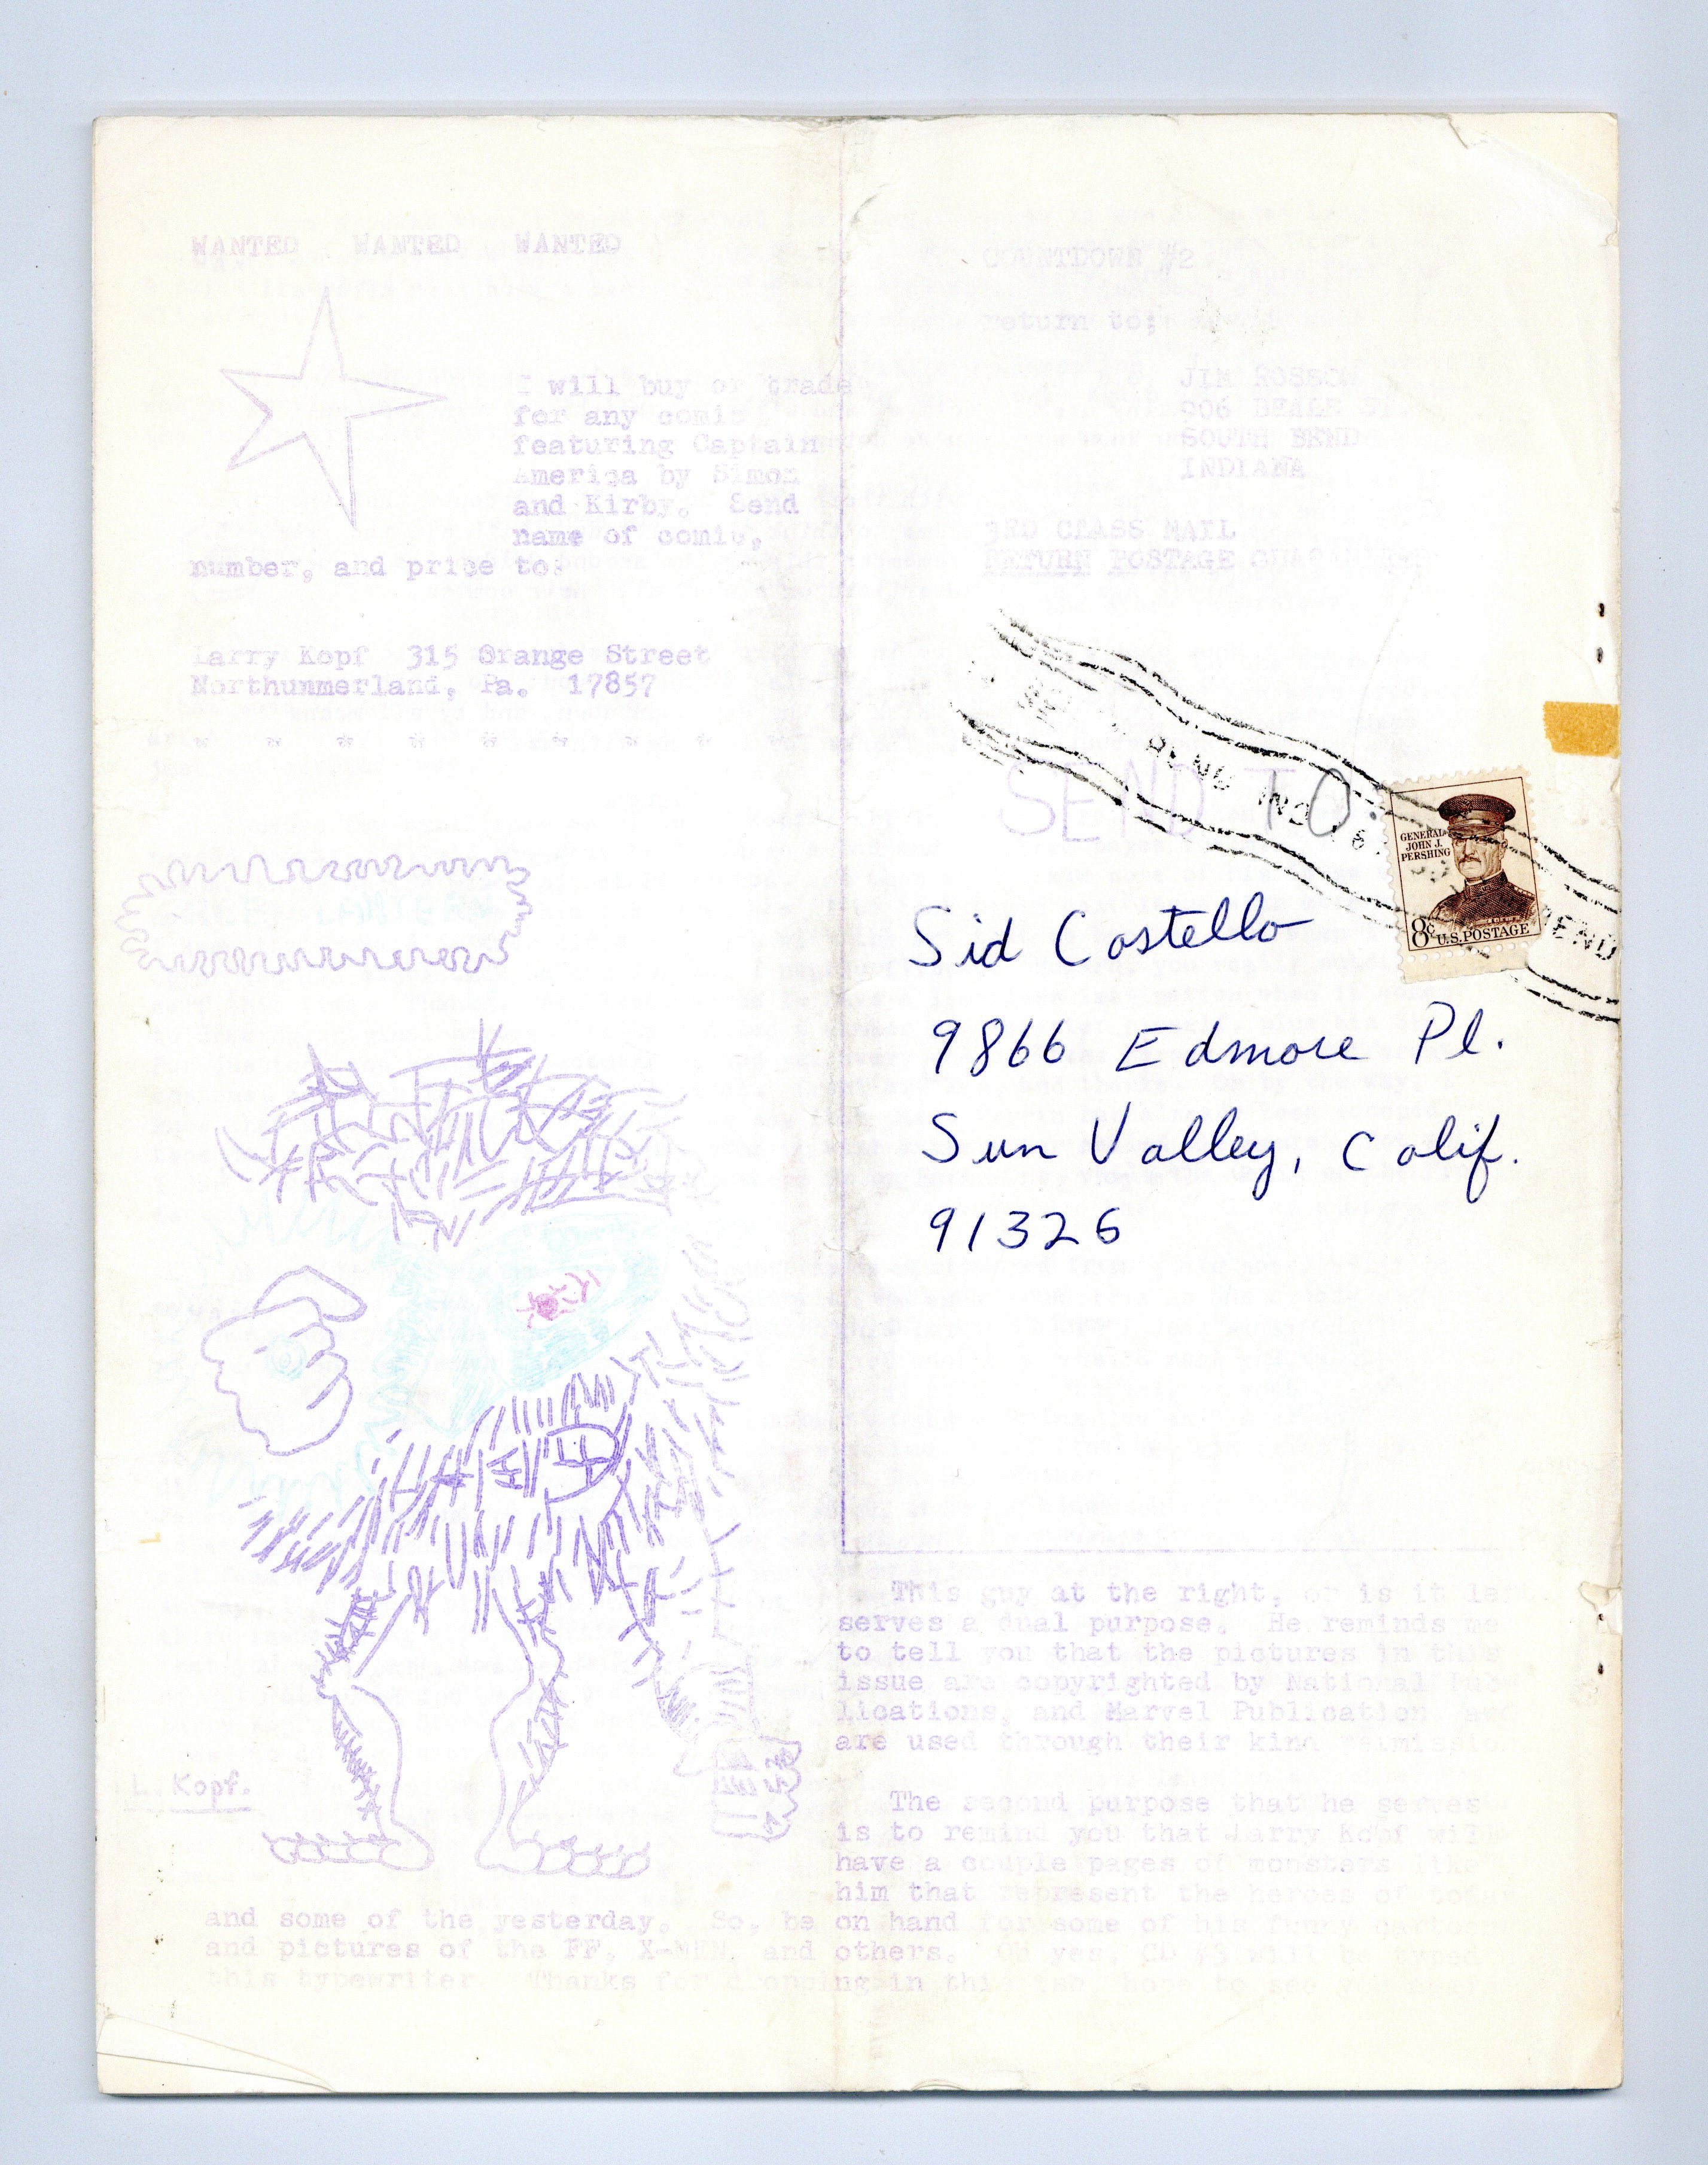 WANTED WANTED WANTED
I will buy or trade
for any comic
featuring Captain
America by Simon
and Kirby. Send
name of comic,
number, and price to:
Larry Kopf 315 Orange Street
Northummerland, Pa. 17857
* * * * * * * * *
L. Kopf.
COUNTDOWN #2
return to;
JIM ROSSOW
906 BEALE ST
SOUTH BEND
INDIANA
3RD CLASS MAIL
RETURN POSTAGE GUARANTEED
SEND TO:
BEND IND
GENERAL
JOHN J.
PERSHING
8¢ U.S. POSTAGE
BEND
Sid Costello
9866 Edmore Pl.
Sun Valley, Calif.
91326
This guy at the right, or is it
serves a dual purpose. He reminds me
to tell you that the pictures in this
issue are copyrighted by National Pub-
lications, and Marvel Publication, and
are used through their kind
The second purpose that he serves
is to remind you that Larry Kopf will
have a couple pages of monsters like
him that represent the heroes of
and some of the yesterday. So, be on hand for some of his
and pictures of the FF, X-MEN, and others. Oh yes, CD #3 will be typed
this typewriter. Thanks for dropping in hope to see